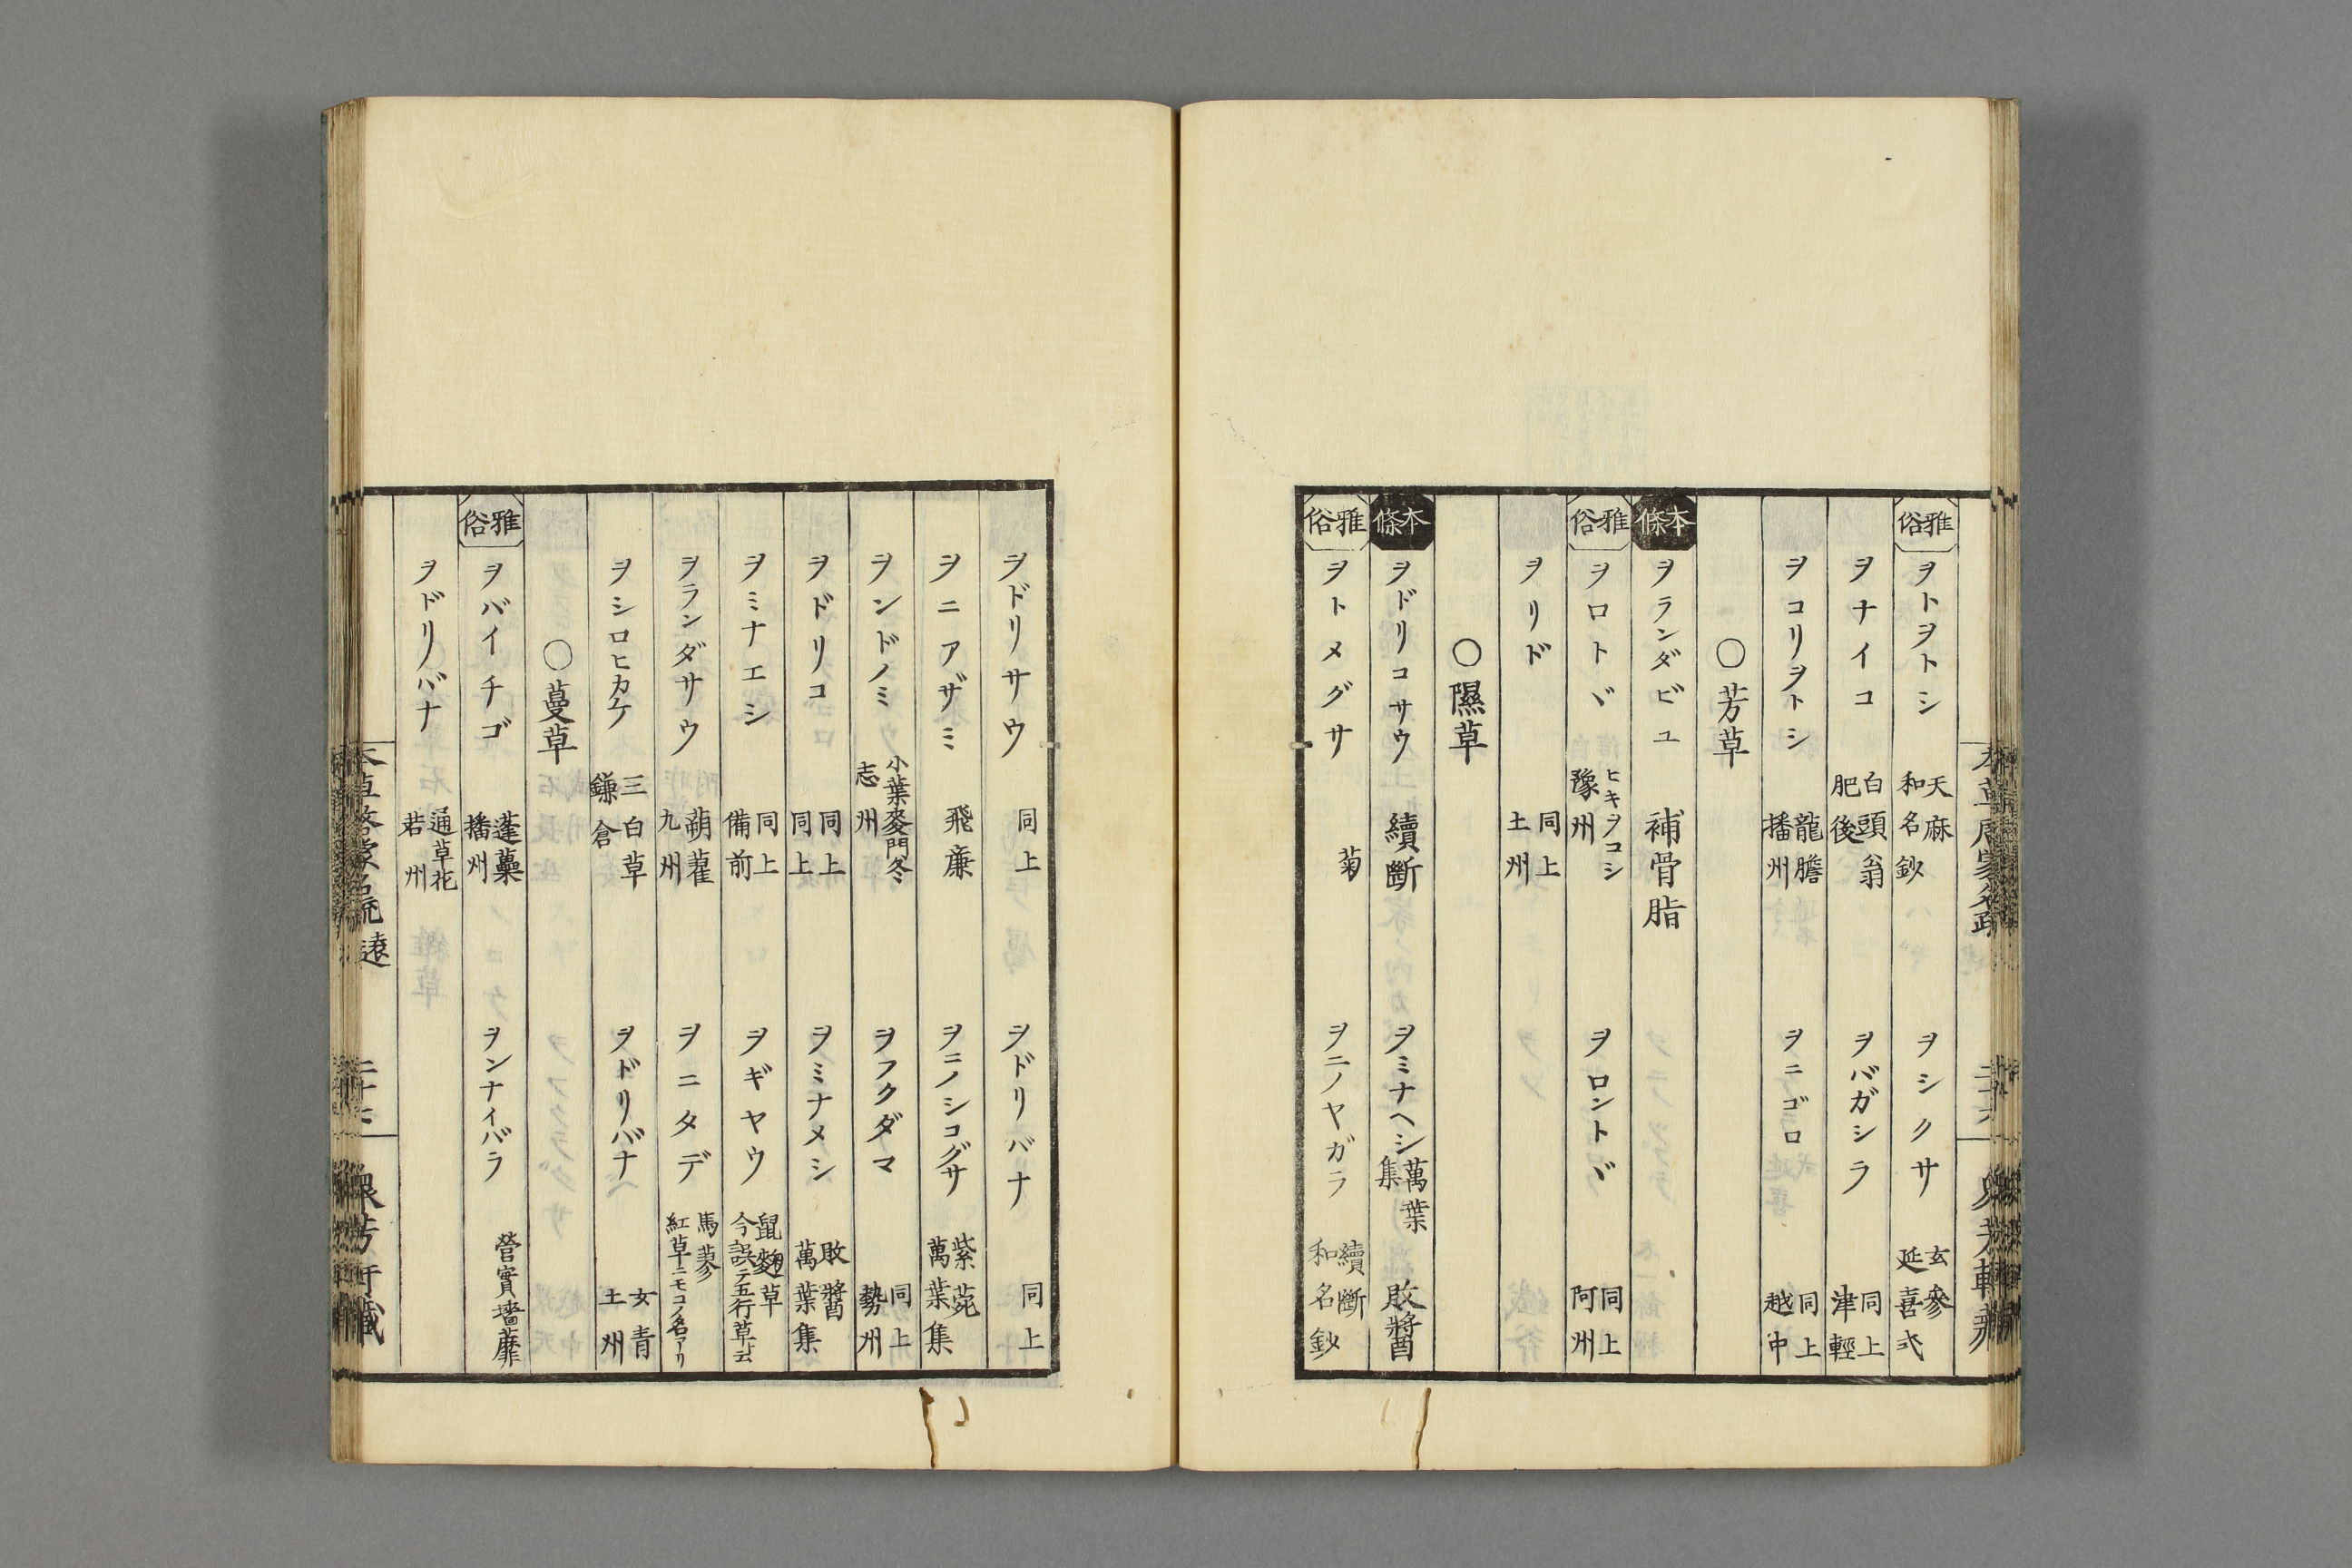 雅俗 ヲトヲトシ 天麻 和名鈔 ヲシクサ 玄參 延喜式
ヲナイコ 白頭翁 肥後 ヲバガシラ 同上 津輕
ヲコリヲトシ 龍膽 播州 ヲニゴロ 同上 越中
○芳草
本條 ヲランダビユ 補骨脂
雅俗 ヲロトヾ ヒキヲコシ 豫州 ヲロントヾ 同上 阿州
ヲリド 同上 土州
○隰草
本條 ヲドリコサウ 續斷 ヲミナヘシ 萬葉集 敗醬
雅俗 ヲトメグサ 菊 ヲニノヤガラ 續斷 和名鈔
ヲドリサウ 同上 ヲドリバナ 同上
ヲニアザミ 飛廉 ヲニノシコグサ 紫菀 萬葉集
ヲンドノミ 小葉麥門冬 志州 ヲフクダマ 同上 勢州
ヲドリコ 同上 同上 ヲミナメシ 敗醬 萬葉集
ヲミナエシ 同上 備前 ヲギヤウ 鼠麴草 今誤テ五行草ト云
ヲランダサウ 蒴藋 九州 ヲニタデ 馬蓼 紅草ニモコノ名アリ
ヲシロヒカケ 三白草 鎌倉 ヲドリバナ 女青 土州
○蔓草
雅俗 ヲバイチゴ 蓬虆 播州 ヲンナイバラ 營實墻蘼
ヲドリバナ 通草花 若州